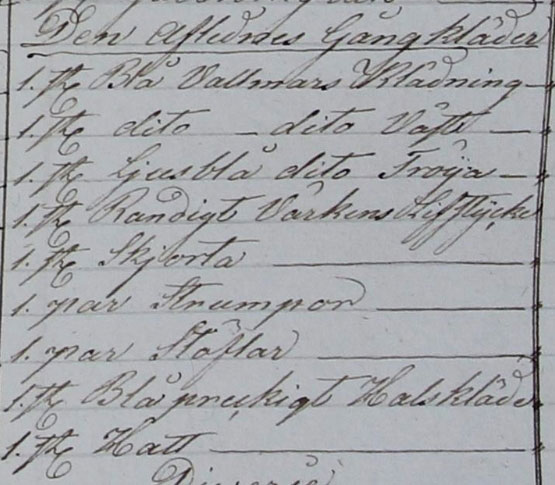 Den Aflednes Gångkläder
1. st Blå Vallmars Klädning
1. st dito dito Väst
1. st Ljusblå dito Tröija
1. st Randigt Vårkens Lifstÿcke
1. st Skjorta
1. par Strumpor
1. par Stöflar
1. st Blå prickigt Halskläde
1. st Hatt
Diverse